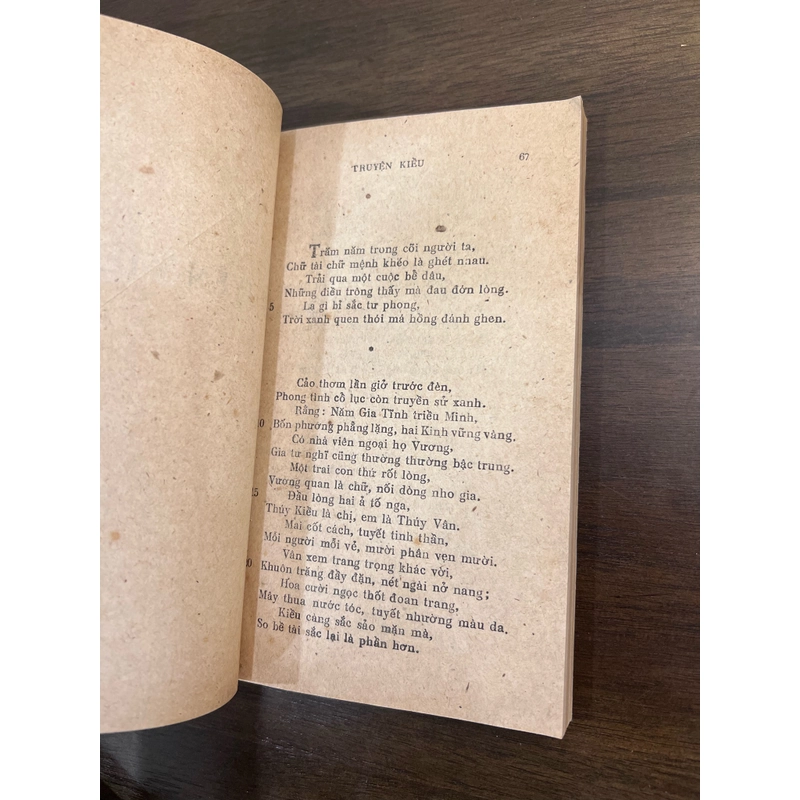 TRUYỆN KIỀU 67
Trăm năm trong cõi người ta,
Chữ tài chữ mệnh khéo là ghét nhau.
Trải qua một cuộc bể dâu,
Những điều trông thấy mà đau đớn lòng.
5 Lạ gì bỉ sắc tư phong,
Trời xanh quen thói má hồng đánh ghen.
Cảo thơm lần giở trước đèn,
Phong tình cổ lục còn truyền sử xanh.
Rằng: Năm Gia Tĩnh triều Minh,
10 Bốn phương phẳng lặng, hai Kinh vững vàng.
Có nhà viên ngoại họ Vương,
Gia tư nghĩ cũng thường thường bậc trung.
Một trai con thứ rốt lòng,
Vương quan là chữ, nối dòng nho gia.
15 Đầu lòng hai ả tố nga,
Thúy Kiều là chị, em là Thúy Vân.
Mai cốt cách, tuyết tinh thần,
Mỗi người mỗi vẻ, mười phân vẹn mười.
Vân xem trang trọng khác vời,
20 Khuôn trăng đầy đặn, nét ngài nở nang;
Hoa cười ngọc thốt đoan trang,
Mây thua nước tóc, tuyết nhường màu da.
Kiều càng sắc sảo mặn mà,
So bề tài sắc lại là phần hơn.